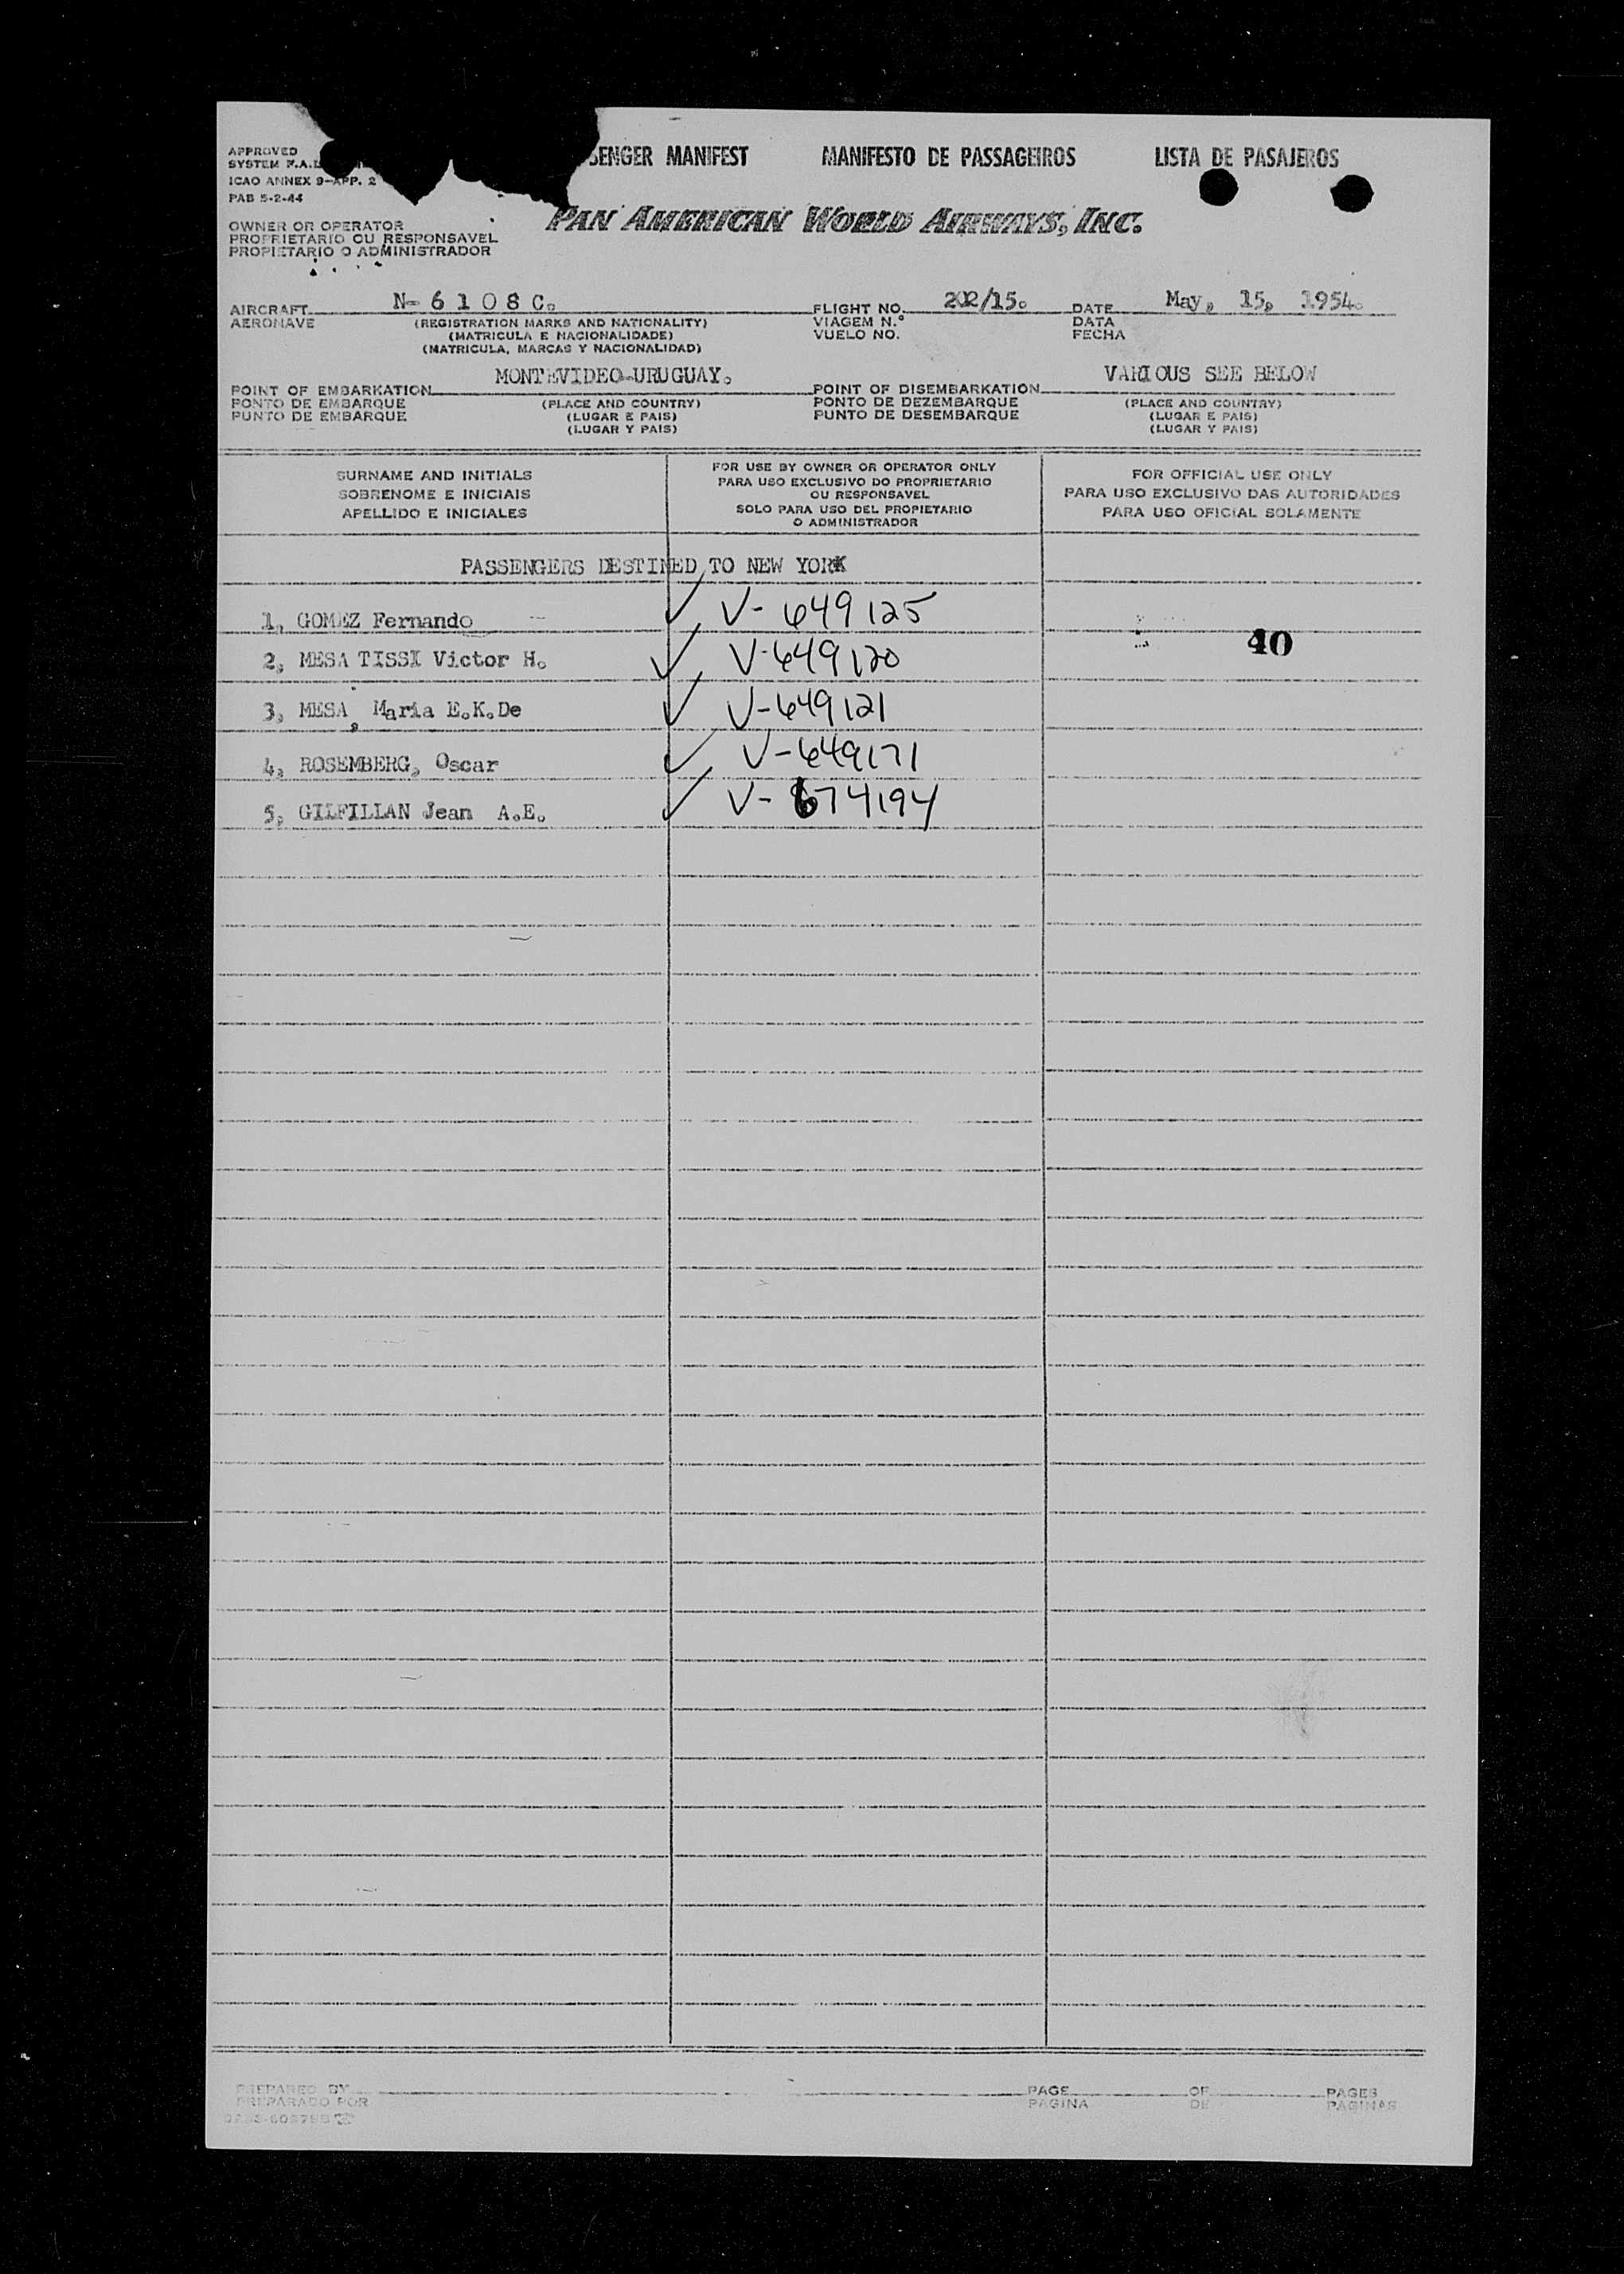 APPROVED
SENGER MANIFEST MANIFESTO DE PASSAGEIROS LISTA DE PASAJEROS
SYSTEM F.A.L
ICAO ANNEX 9-APP. 2
PAB 5-2-44
PAN AMERICAN WORLD AIRWAYS, INC.
OWNER OR OPERATOR
PROPRIETARIO OU RESPONSAVEL
PROPIETARIO O ADMINISTRADOR
AIRCRAFT N-6108C. FLIGHT NO. 202/15. DATE May, 15, 1954.
AERONAVE (REGISTRATION MARKS AND NATIONALITY) VIAGEM N.° DATA
(MATRICULA E NACIONALIDADE) VUELO NO. FECHA
(MATRICULA, MARCAS Y NACIONALIDAD)
POINT OF EMBARKATION MONTEVIDEO-URUGUAY. POINT OF DISEMBARKATION VARIOUS SEE BELOW
PONTO DE EMBARQUE (PLACE AND COUNTRY) PONTO DE DEZEMBARQUE (PLACE AND COUNTRY)
PUNTO DE EMBARQUE (LUGAR E PAIS) PUNTO DE DESEMBARQUE (LUGAR E PAIS)
(LUGAR Y PAIS) (LUGAR Y PAIS)
SURNAME AND INITIALS
SOBRENOME E INICIAIS
APELLIDO E INICIALES
FOR USE BY OWNER OR OPERATOR ONLY
PARA USO EXCLUSIVO DO PROPRIETARIO
OU RESPONSAVEL
SOLO PARA USO DEL PROPIETARIO
O ADMINISTRADOR
FOR OFFICIAL USE ONLY
PARA USO EXCLUSIVO DAS AUTORIDADES
PARA USO OFICIAL SOLAMENTE
PASSENGERS DESTINED TO NEW YORK
1, GOMEZ Fernando ✓ V-649125
40
2, MESA TISSI Victor H. ✓ V-649120
3, MESA, Maria E.K.De ✓ V-649121
4, ROSEMBERG, Oscar ✓ V-649171
5, GILFILLAN Jean A.E. ✓ V-674194
PREPARED BY PAGE OF PAGES
PREPARADO POR PAGINA DE PAGINAS